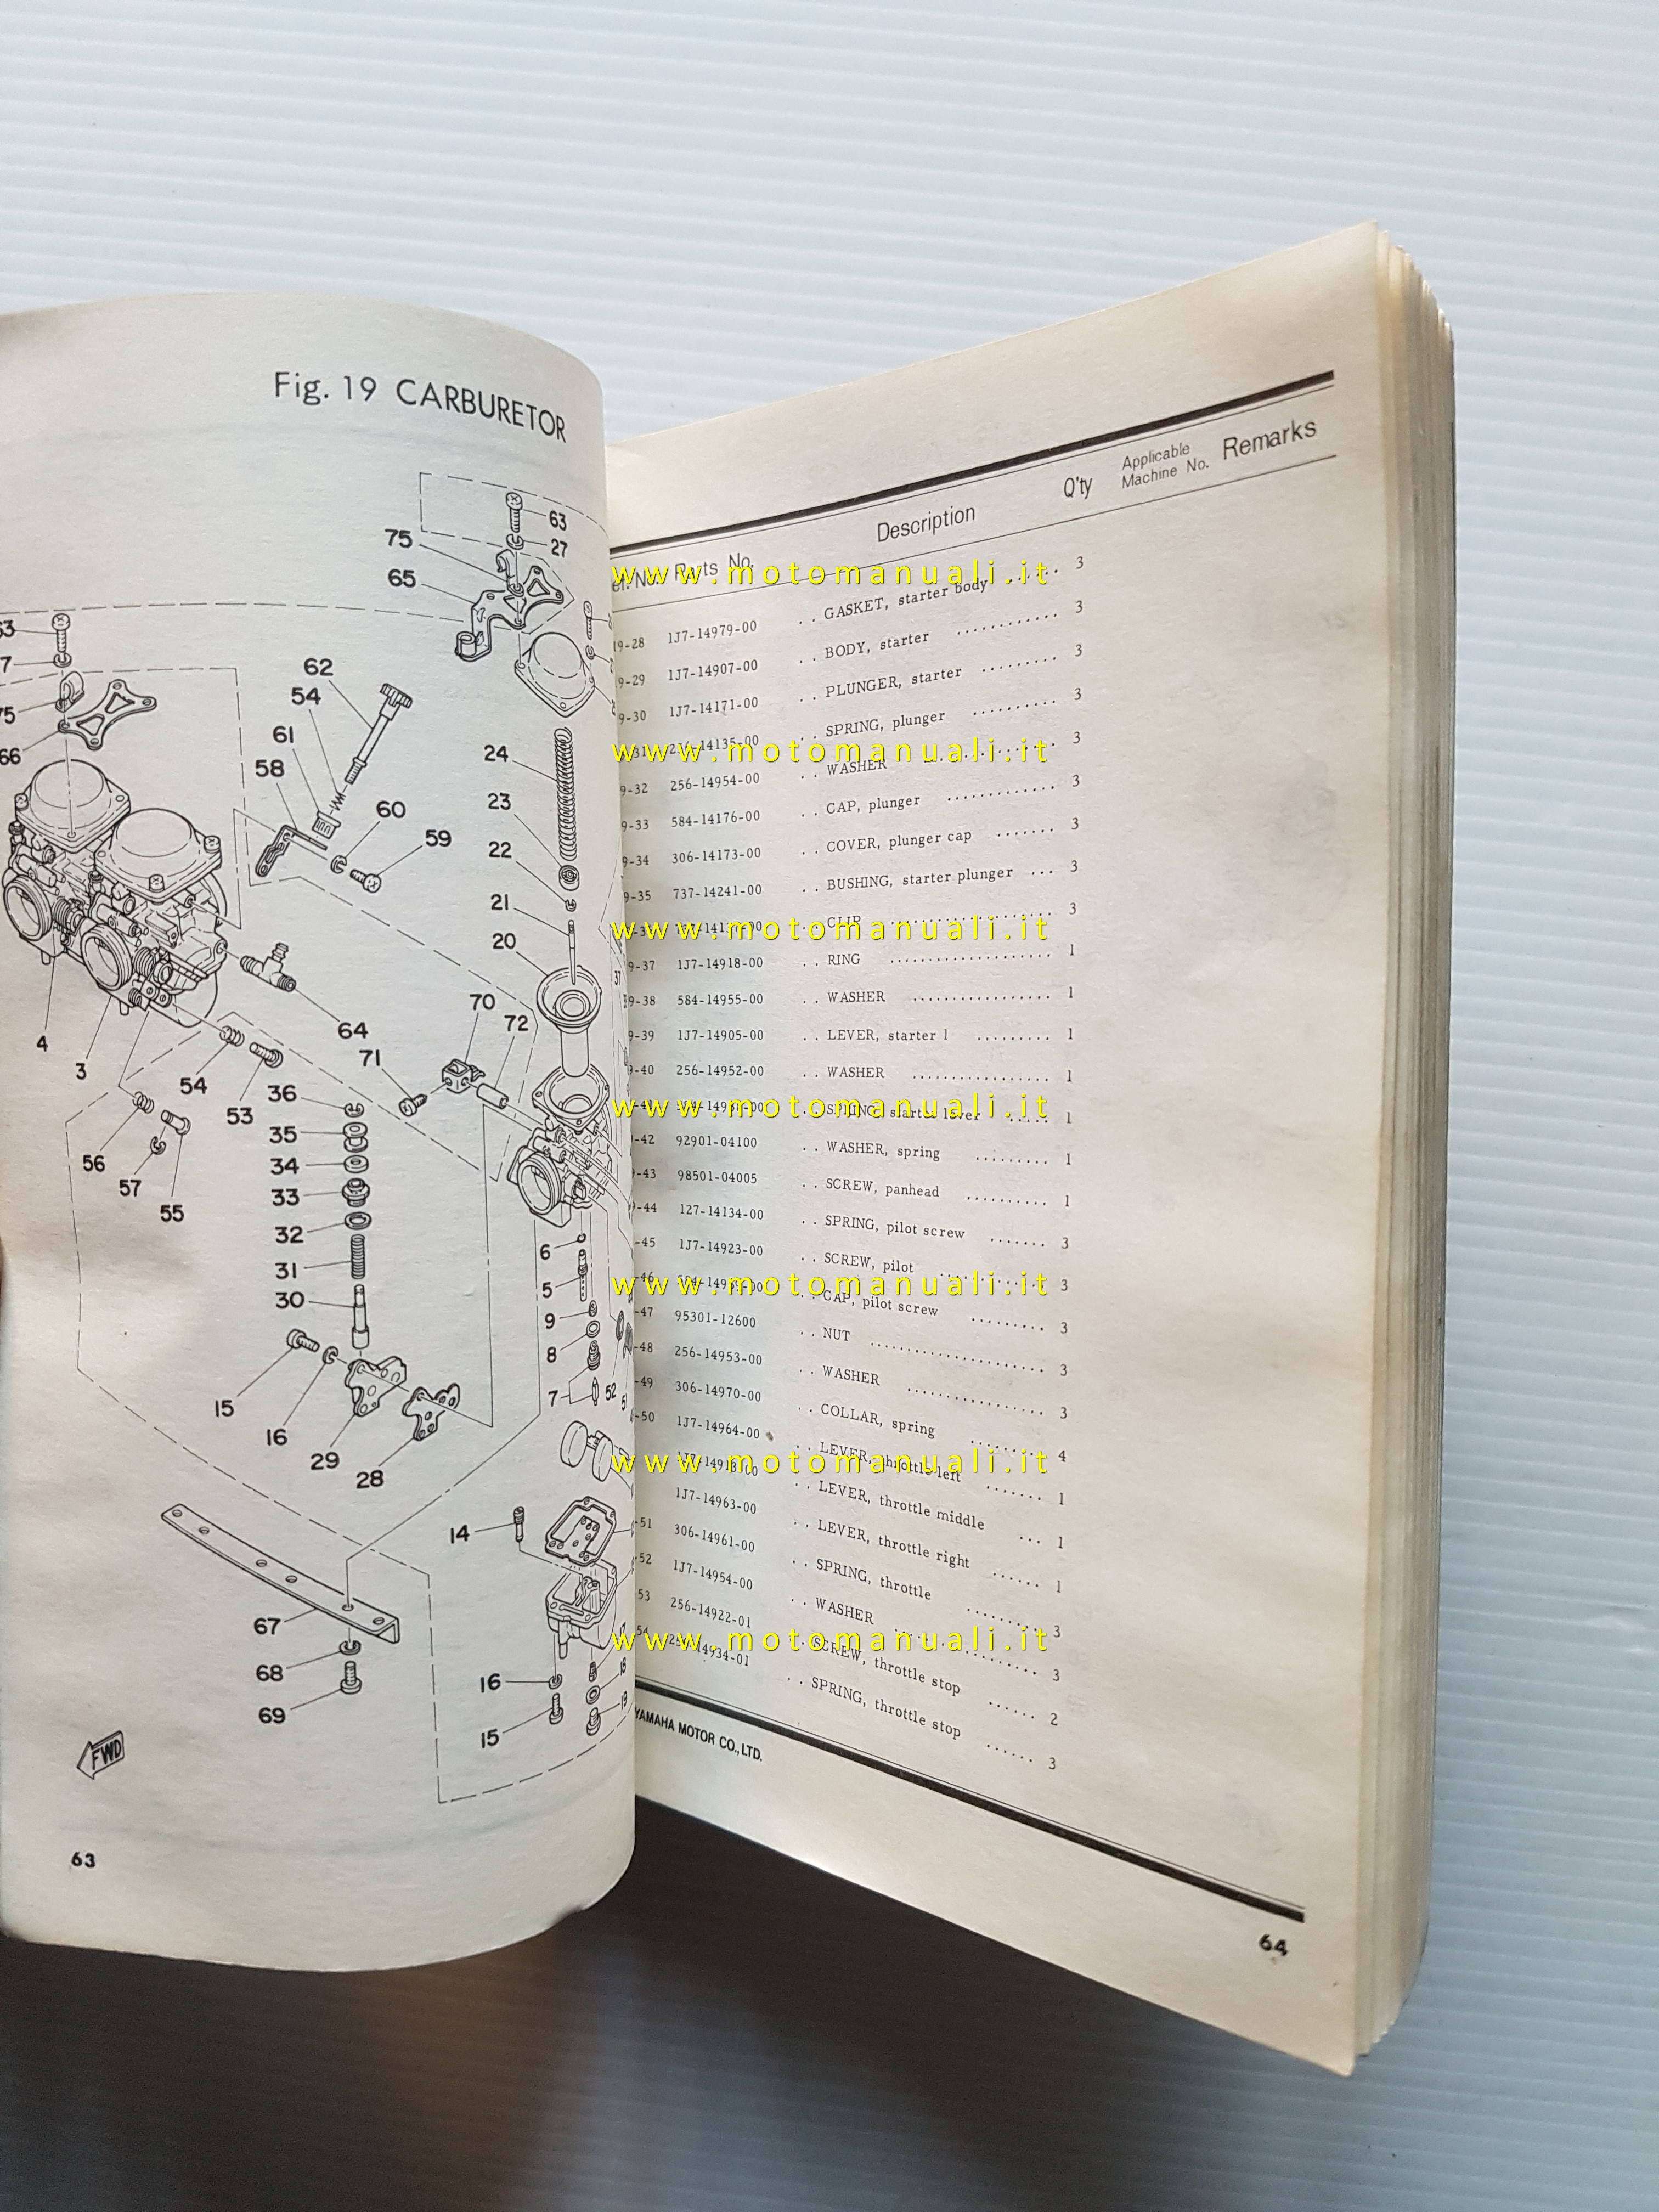 Fig. 19 CARBURETOR
63
27
75
65
62
54
61
58
60
59
24
23
22
21
20
66
4
3
64
70
72
71
54
53
56
57
55
36
35
34
33
32
31
30
15
16
29
28
6
5
9
8
7
52
14
67
68
69
16
15
17
18
19
FWD
63
Parts No. Description Q'ty Applicable Machine No. Remarks
19-28 1J7-14979-00 . . GASKET, starter body 3
9-29 1J7-14907-00 . . BODY, starter 3
9-30 1J7-14171-00 . . PLUNGER, starter 3
. . SPRING, plunger 3
9-32 256-14954-00 . . WASHER 3
9-33 584-14176-00 . . CAP, plunger 3
9-34 306-14173-00 . . COVER, plunger cap 3
9-35 737-14241-00 . . BUSHING, starter plunger 3
. . CLIP 3
9-37 1J7-14918-00 . . RING 1
9-38 584-14955-00 . . WASHER 1
9-39 1J7-14905-00 . . LEVER, starter 1 1
9-40 256-14952-00 . . WASHER 1
. . SPRING, starter lever 1
-42 92901-04100 . . WASHER, spring 1
-43 98501-04005 . . SCREW, panhead 1
-44 127-14134-00 . . SPRING, pilot screw 3
-45 1J7-14923-00 . . SCREW, pilot 3
-46 . . CAP, pilot screw 3
-47 95301-12600 . . NUT 3
-48 256-14953-00 . . WASHER 3
-49 306-14970-00 . . COLLAR, spring 4
-50 1J7-14964-00 . . LEVER, throttle left 1
. . LEVER, throttle middle 1
1J7-14963-00 . . LEVER, throttle right 1
-51 306-14961-00 . . SPRING, throttle 3
-52 1J7-14954-00 . . WASHER 3
53 256-14922-01 . . SCREW, throttle stop 2
54 . . SPRING, throttle stop 3
YAMAHA MOTOR CO., LTD.
64
www.motomanuali.it
www.motomanuali.it
www.motomanuali.it
www.motomanuali.it
www.motomanuali.it
www.motomanuali.it
www.motomanuali.it